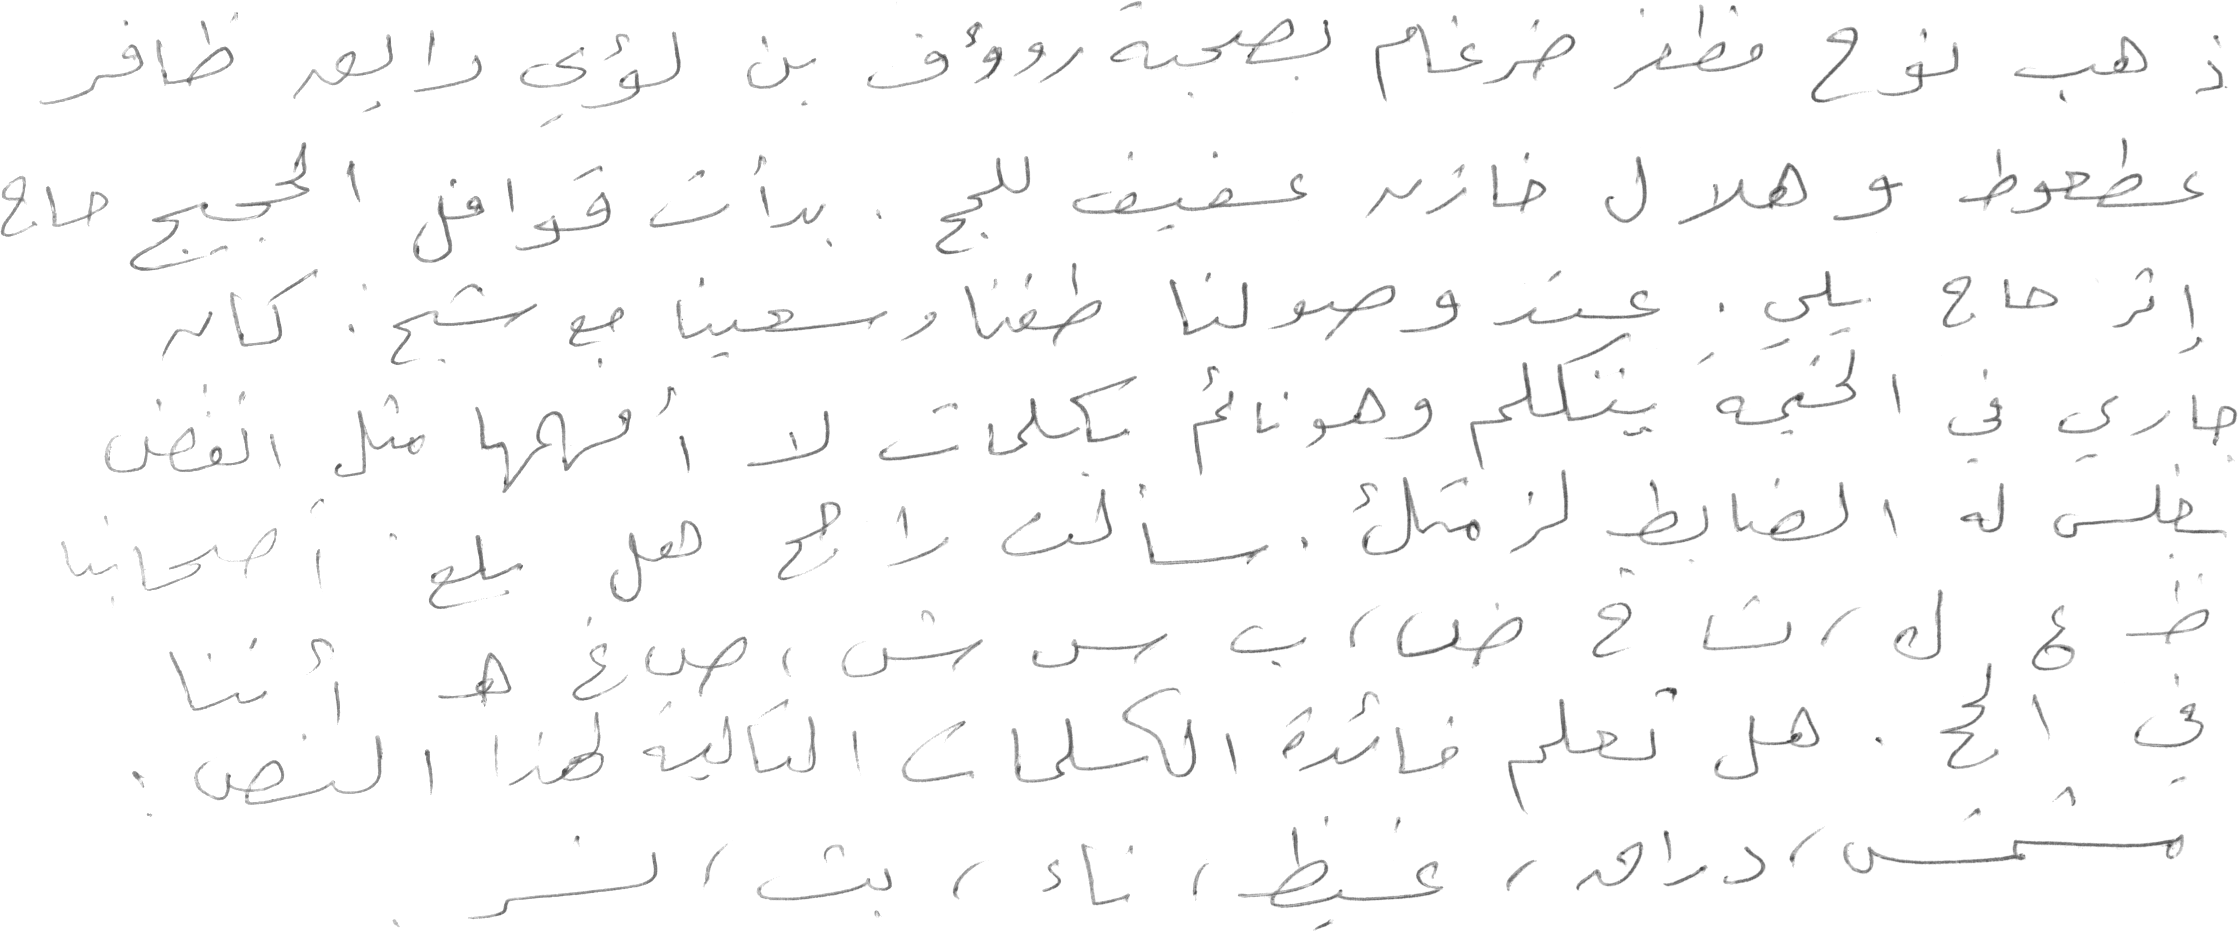 ذهب نوح مظفر ضرغام بصحبة رووؤف بن لؤي رايعه ظافر
عطعوط و هلال خازن عفيف للحج . بدأت قوافل الحجيج حاج
إثر حاج يلي . عند وصولنا طفنا وسعينا مع شيخ . كان
جاري في الخيمة يتكلم وهو نائم بكلمات لا أفهمها مثل انقض
بخلس له الضابط لزمتك . سألت راجح هل بلغ أصحابنا
ظ ع ك ، ث ا ق ض ، ب س ش ، ص غ هـ أننا
في الحج . هل تعلم فائدة الكلمات التالية لهذا النص :
مشمش ، دراق ، غيظ ، ناء ، بث ، نسر .